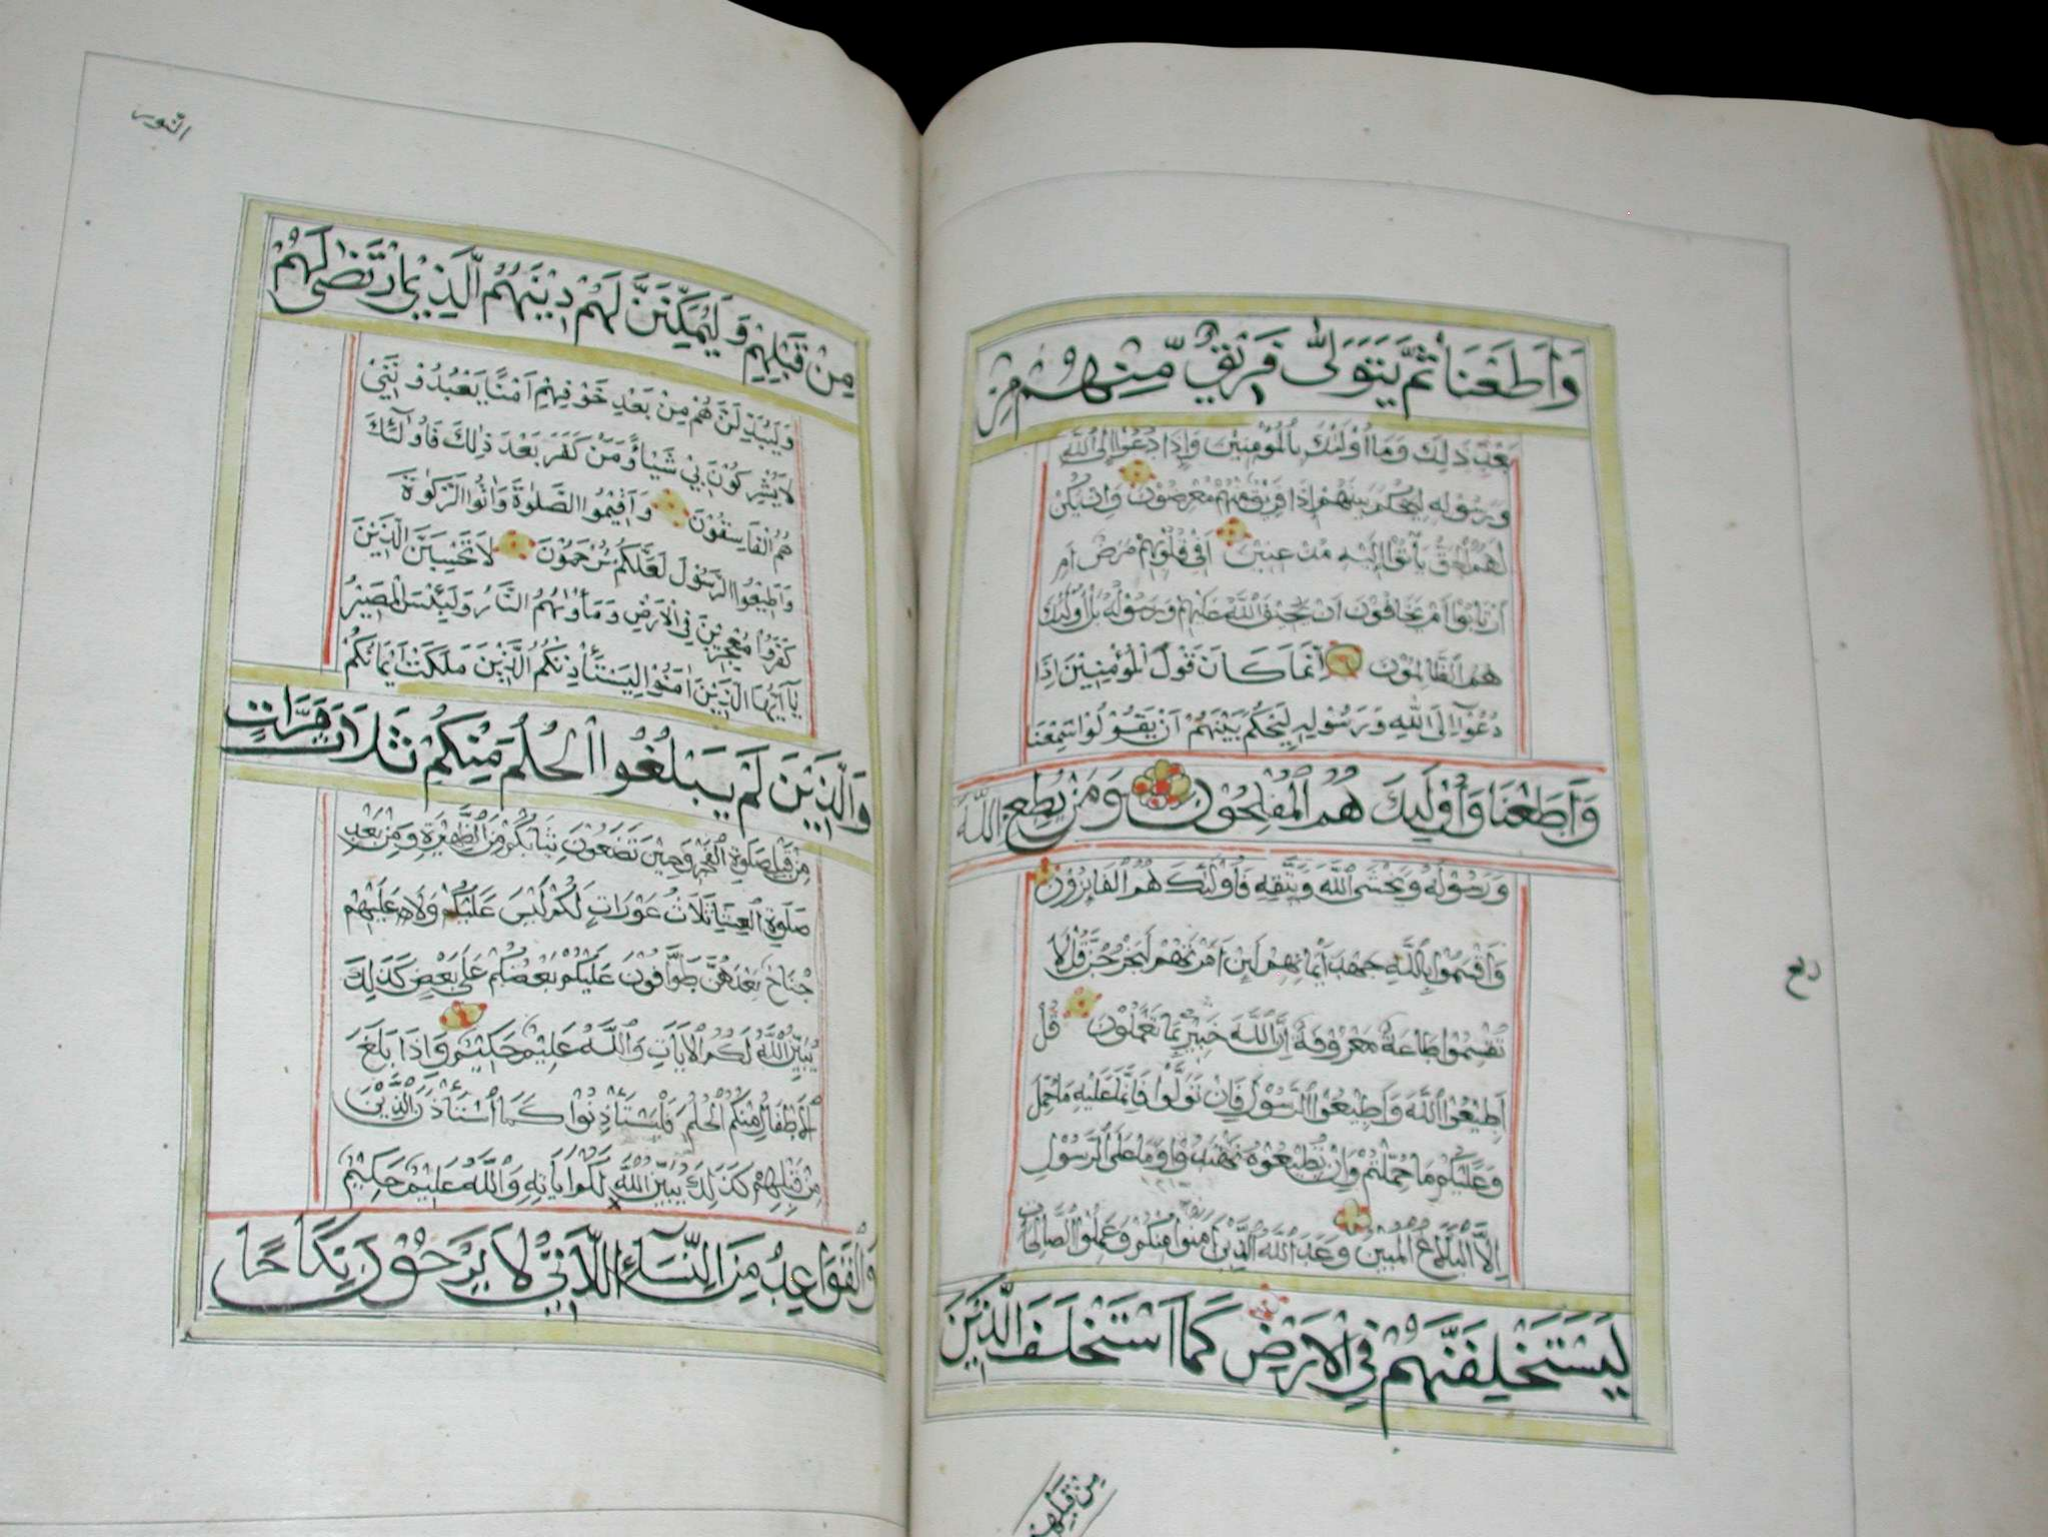 وَأَطَعْنَا ثُمَّ يَتَوَلَّىٰ فَرِيقٌ مِّنْهُمْ مِنْ
بَعْدِ ذَلِكَ وَمَا أُوْلَئِكَ بِالْمُؤْمِنِيْنَ وَإِذَا دُعُوْا إِلَى اللَّهِ
وَرَسُوْلِهِ لِيَحْكُمَ بَيْنَهُمْ إِذَا فَرِيْقٌ مِنْهُمْ مُعْرِضُوْنَ وَإِنْ يَكُنْ
لَهُمُ الْحَقُّ يَأْتُوْا إِلَيْهِ مُذْعِنِيْنَ أَفِيْ قُلُوْبِهِمْ مَرَضٌ أَمِ
ارْتَابُوْا أَمْ يَخَافُوْنَ أَنْ يَحِيْفَ اللَّهُ عَلَيْهِمْ وَرَسُوْلُهُ بَلْ أُولَئِكَ
هُمُ الظَّالِمُوْنَ إِنَّمَا كَانَ قَوْلَ الْمُؤْمِنِيْنَ إِذَا
دُعُوْا إِلَى اللَّهِ وَرَسُوْلِهِ لِيَحْكُمَ بَيْنَهُمْ أَنْ يَقُوْلُوْا سَمِعْنَا
وَأَطَعْنَا وَأُوْلَئِكَ هُمُ الْمُفْلِحُوْنَ وَمَنْ يُطِعِ اللَّهَ
وَرَسُوْلَهُ وَيَخْشَ اللَّهَ وَيَتَّقْهِ فَأُوْلَئِكَ هُمُ الْفَائِزُوْنَ
وَأَقْسَمُوْا بِاللَّهِ جَهْدَ أَيْمَانِهِمْ لَئِنْ أَمَرْتَهُمْ لَيَخْرُجُنَّ قُلْ لَا
تُقْسِمُوْا طَاعَةٌ مَعْرُوْفَةٌ إِنَّ اللَّهَ خَبِيْرٌ بِمَا تَعْمَلُوْنَ قُلْ
أَطِيْعُوْا اللَّهَ وَأَطِيْعُوْا الرَّسُوْلَ فَإِنْ تَوَلَّوْا فَإِنَّمَا عَلَيْهِ مَا حُمِّلَ
وَعَلَيْكُمْ مَا حُمِّلْتُمْ وَإِنْ تُطِيْعُوْهُ تَهْتَدُوْا وَمَا عَلَى الرَّسُوْلِ
إِلَّا الْبَلَاغُ الْمُبِيْنُ وَعَدَ اللَّهُ الَّذِيْنَ آمَنُوْا مِنْكُمْ وَعَمِلُوْا الصَّالِحَاتِ
لَيَسْتَخْلِفَنَّهُمْ فِي الْأَرْضِ كَمَا اسْتَخْلَفَ الَّذِيْنَ
مِنْ قَبْلِهِمْ
ربع
النور
مِنْ قَبْلِهِمْ وَلَيُمَكِّنَنَّ لَهُمْ دِيْنَهُمُ الَّذِيْ ارْتَضَىٰ لَهُمْ
وَلَيُبَدِّلَنَّهُمْ مِنْ بَعْدِ خَوْفِهِمْ أَمْنًا يَعْبُدُوْنَنِيْ
لَا يُشْرِكُوْنَ بِيْ شَيْئًا وَمَنْ كَفَرَ بَعْدَ ذٰلِكَ فَأُوْلَئِكَ
هُمُ الْفَاسِقُوْنَ وَأَقِيْمُوا الصَّلٰوةَ وَآتُوا الزَّكٰوةَ
وَأَطِيْعُوا الرَّسُوْلَ لَعَلَّكُمْ تُرْحَمُوْنَ لَا تَحْسَبَنَّ الَّذِيْنَ
كَفَرُوْا مُعْجِزِيْنَ فِي الْأَرْضِ وَمَأْوٰىهُمُ النَّارُ وَلَبِئْسَ الْمَصِيْرُ
يَا أَيُّهَا الَّذِيْنَ آمَنُوْا لِيَسْتَأْذِنْكُمُ الَّذِيْنَ مَلَكَتْ أَيْمَانُكُمْ
وَالَّذِيْنَ لَمْ يَبْلُغُوا الْحُلُمَ مِنْكُمْ ثَلَاثَ مَرَّاتٍ
مِنْ قَبْلِ صَلٰوةِ الْفَجْرِ وَحِيْنَ تَضَعُوْنَ ثِيَابَكُمْ مِنَ الظَّهِيْرَةِ وَمِنْ بَعْدِ
صَلٰوةِ الْعِشَاءِ ثَلَاثُ عَوْرَاتٍ لَكُمْ لَيْسَ عَلَيْكُمْ وَلَا عَلَيْهِمْ
جُنَاحٌ بَعْدَهُنَّ طَوَّافُوْنَ عَلَيْكُمْ بَعْضُكُمْ عَلَىٰ بَعْضٍ كَذَلِكَ
يُبَيِّنُ اللَّهُ لَكُمُ الْآيَاتِ وَاللَّهُ عَلِيْمٌ حَكِيْمٌ وَإِذَا بَلَغَ
الْأَطْفَالُ مِنْكُمُ الْحُلُمَ فَلْيَسْتَأْذِنُوْا كَمَا اسْتَأْذَنَ الَّذِيْنَ
مِنْ قَبْلِهِمْ كَذَلِكَ يُبَيِّنُ اللَّهُ لَكُمْ آيَاتِهِ وَاللَّهُ عَلِيْمٌ حَكِيْمٌ
وَالْقَوَاعِدُ مِنَ النِّسَاءِ اللَّاتِيْ لَا يَرْجُوْنَ نِكَاحًا